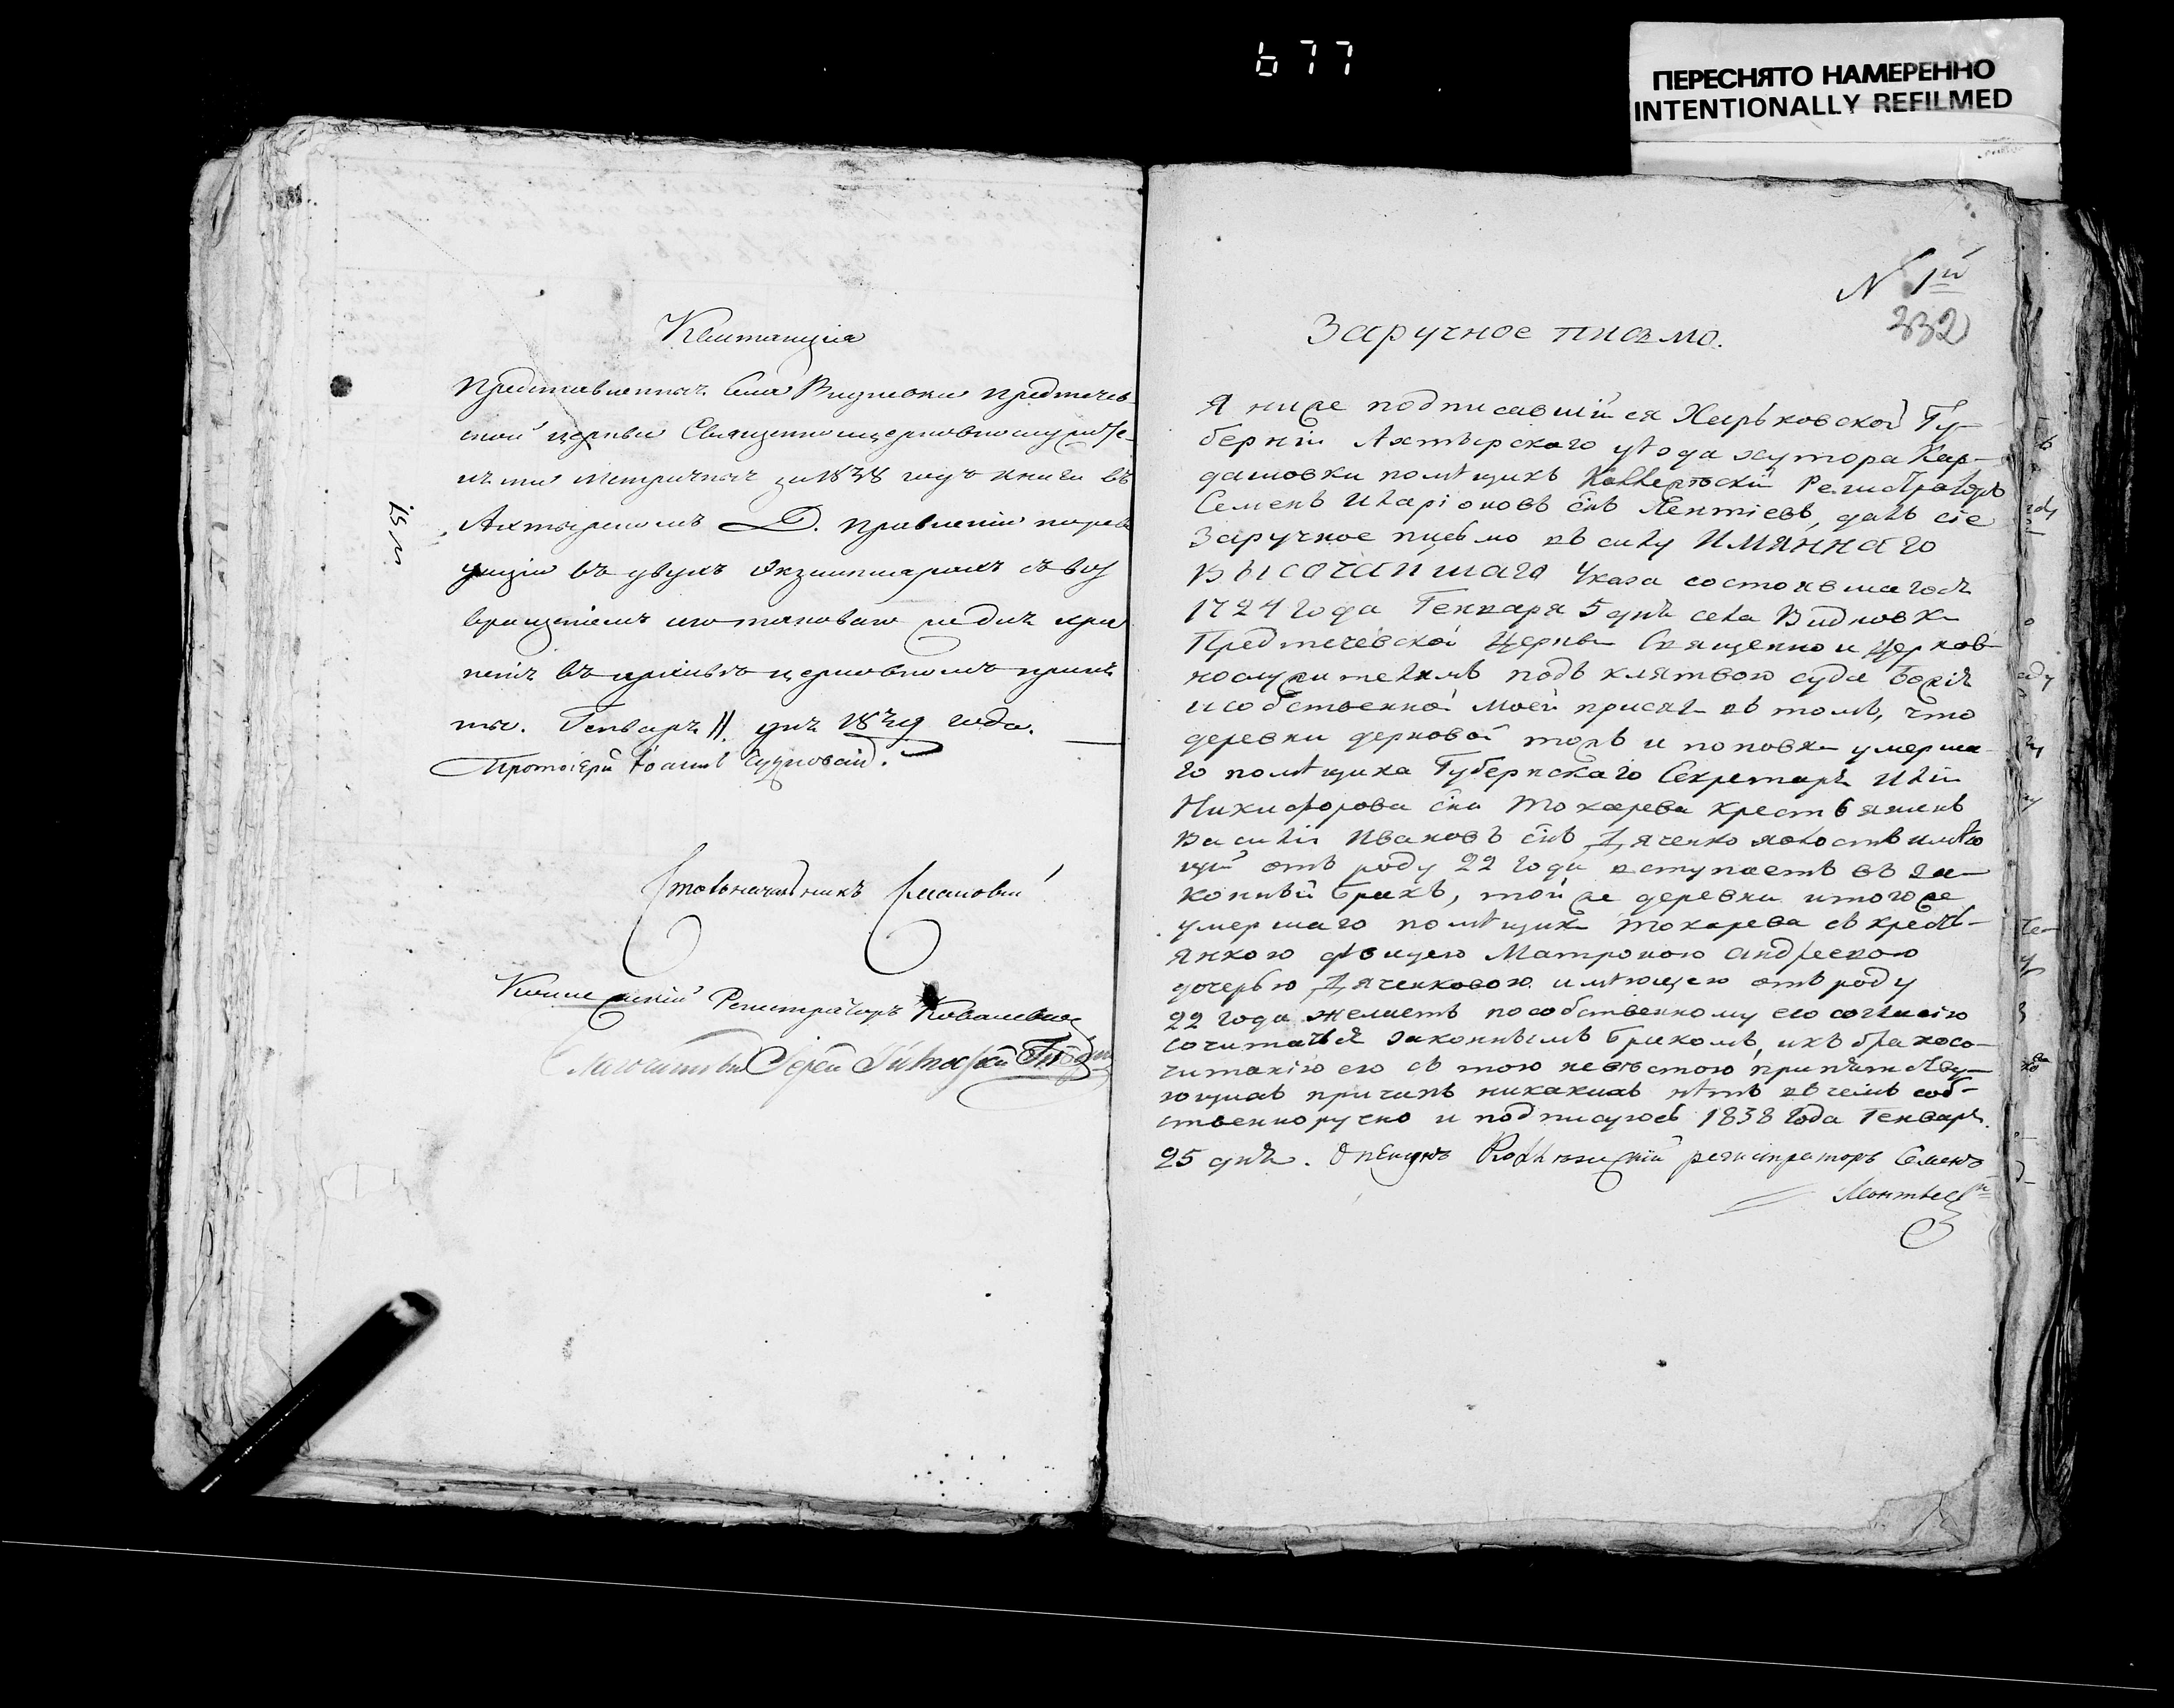 677
ПЕРЕСНЯТО НАМЕРЕННО
INTENTIONALLY REFILMED
Квитанція
Представленныя Села Видновки Предтечев-
ской церкви Священноицерковнослужите-
лями Метрическія за 1838 годъ книги въ
Ахтырскомъ Д. Правленіи
въ двухъ Экземплярахъ съ воз
вращеніемъ одного для хра
ненія въ архивѣ церковномъ приня
ты. Генваря 11. дня 1839 года.
Протоіерей Іоаннъ
Столоначальникъ
Коллежскій Регистраторъ Ковалевскій
Благочинный Іерей
N 1й
332
Заручное писмо.
Я ниже подписавшійся Харьковской Гу-
берніи Ахтырского уѣзда хутора Кар-
дашовки помѣщикъ Коллежскій Регистраторъ
Семенъ Иларіоновъ снъ Леnтіевъ, далъ сіе
Заручное письмо въ силу ИМЯННАГО
ВЫСОЧАЙШАГО Указа состоявшагося
1724 года Генваря 5 дня села Видновки
Предтечевской Церкви Священно и Церков-
нослужителямъ подъ клятвою суда Божія
и собственной моей присяги въ томъ, что
деревни терновой тожъ и поповки умерша-
го помѣщика Губернскаго Секретаря Иліи
Никифорова сна Токарева крестьянинъ
Василій Ивановъ снъ Дяченко холостъ имѣю
щій отъ роду 22 года вступаетъ въ за-
конный бракъ, той же деревни и того же
умершаго помѣщика Токарева съ кресть-
янкою дѣвицею Матроною Андреевою
дочерью Дяченковою имѣющею отъ роду
22 года желаетъ пособственному его согласію
сочиматься законнымъ бракомъ, и къ бракосо-
читанію его съ тою невѣстою препятству-
ющихъ причинъ никакихъ нѣтъ въ чемъ соб-
ственноручно и подписуюсь 1838 года Генваря.
25 дня. Опекунъ Коллежскій регистраторъ Семенъ
Леонтьевъ